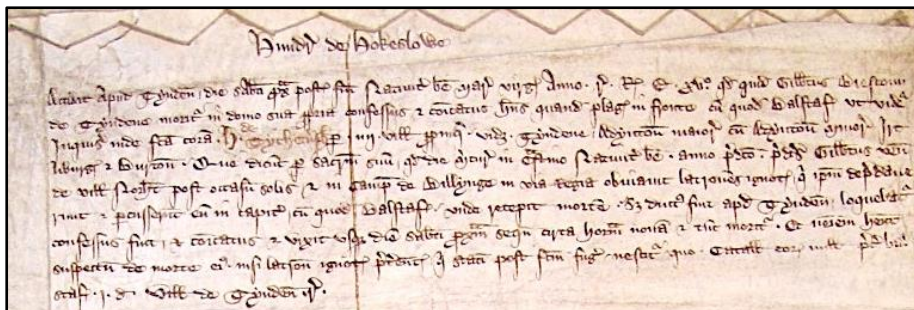 Hundr' de Hokeslowe
Accidit apud Gynden' die Sab'ti px' post festu' Nativit' be' Mar' virg' Anno . r'. R' E. xv° qd quid' Gilb'tus
de Gyndene mort' in domo sua p'pria confessus & co'icatus h'ns quand' plag' in fronte cu' quod' Balstaf ut vid'
Inquis' inde f'ta cora' H. de Gychemsh' p' iiii vill' p'pinq' . vid' . Gyndene Adyntton' maior' cu' Adyntton' minor' Irt
liburg' & Burton' . Qui dicu't p' sacr'm suu' qd die m'cur' in c'stino Nativit' be' . anno p'dco' . p'dcs Gilb'tus ven'
de vill' Norh't post occasu' solis & in Camp' de Billynge in via Regia obviavit latrones ignotos q' ip'm dep'dave
runt & p'cusserunt eu' in capite cu' quod' Balstaf . unde recepit morte' . S; duct' fuit apd Gynden' loquelat'
confessus fuit . & co'icatus & vixit usq; die' Sab'ti p'xm sequ' circa hora' nona' & tu'c mort' . Et n'em' he't
suspectu' de morte ei' . nisi latron' ignot' p'dict' q' stati' post f'tm fug' . nescit' quo . Catall' eor' null' p'c' bal
staf . i . d . vill' de Gynden' r' .